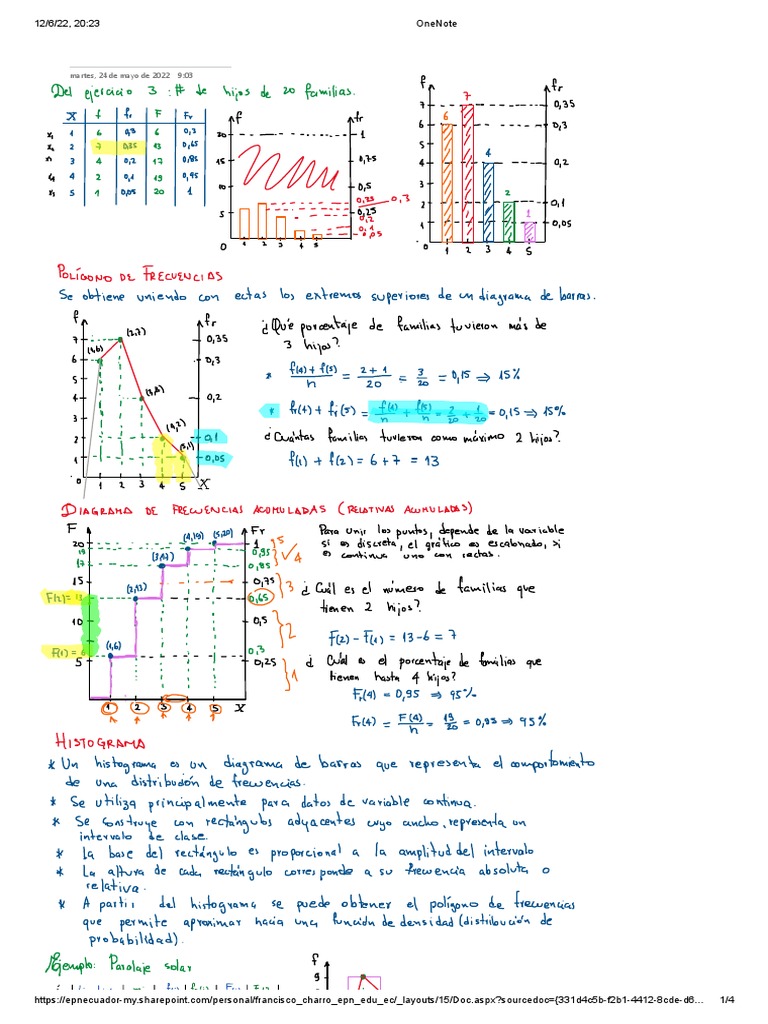 12/6/22, 20:23
OneNote
martes, 24 de mayo de 2022 9:03
Del ejercicio 3 : # de hijos de 20 familias.
X f fr F Fr
x₁ 1 6 0,3 6 0,3
x₂ 2 7 0,35 13 0,65
3 4 0,2 17 0,85
4 2 0,1 19 0,95
x₅ 5 1 0,05 20 1
f fr
20 1
15 0,75
10 0,5
0,35 0,3
5 0,25
0,2
0,1
0,05
0 1 2 3 4 5
f fr
7 7 0,35
6 6 0,3
5
4 4 0,2
3
2 2 0,1
1 1 0,05
0 1 2 3 4 5
POLÍGONO DE FRECUENCIAS
Se obtiene uniendo con ectas los extremos superiores de un diagrama de barras.
f fr
7 (2,7) 0,35
6 (1,6) 0,3
5
4 0,2
3
2 (4,2) 0,1
1 (5,1) 0,05
0 1 2 3 4 5 X
¿Qué porcentaje de familias tuvieron más de
3 hijos?
* f(4) + f(5) / n = 2+1 / 20 = 3/20 = 0,15 ⇒ 15%
* fr(4) + fr(5) = f(4)/n + f(5)/n = 2/20 + 1/20 = 0,15 ⇒ 15%
¿Cuántas familias tuvieron como máximo 2 hijos?
f(1) + f(2) = 6 + 7 = 13
DIAGRAMA DE FRECUENCIAS ACUMULADAS (RELATIVAS ACUMULADAS)
F Fr
20 (4,19) (5,20) 1 5
19 0,95 4
17 (3,17) 0,85
15 0,75 3
F(2)= 13 (2,13) 0,65
10 0,5 2
F(1)= 6 (1,6) 0,3
5 0,25 1
1 2 3 4 5 X
Para unir los puntos, depende de la variable
si es discreta, el gráfico es escalonado, si
es continua uno con rectas.
¿Cuál es el número de familias que
tienen 2 hijos?
F(2) - F(1) = 13 - 6 = 7
¿ Cuál es el porcentaje de familias que
tienen hasta 4 hijos?
Fr(4) = 0,95 ⇒ 95%
Fr(4) = F(4)/n = 19/20 = 0,95 ⇒ 95%
HISTOGRAMA
* Un histograma es un diagrama de barras que representa el comportamiento
de una distribución de frecuencias.
* Se utiliza principalmente para datos de variable continua.
* Se construye con rectángulos adyacentes cuyo ancho, representa un
intervalo de clase.
* La base del rectángulo es proporcional a la amplitud del intervalo
* La altura de cada rectángulo corresponde a su frecuencia absoluta o
relativa.
* A partir del histograma se puede obtener el polígono de frecuencias
que permite aproximar hacia una función de densidad (distribución de
probabilidad).
Ejemplo: Parolaje solar
f
9
https://epnecuador-my.sharepoint.com/personal/francisco_charro_epn_edu_ec/_layouts/15/Doc.aspx?sourcedoc={331d4c5b-f2b1-4412-8cde-d6…
1/4